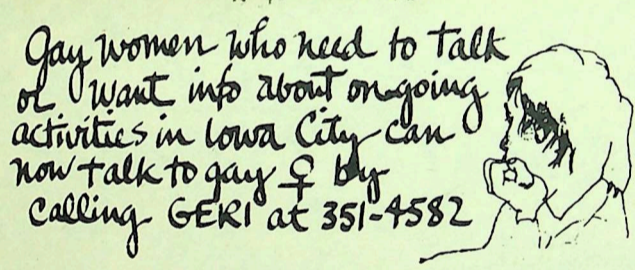 Gay women who need to talk
or want info about on-going
activities in Iowa City can
now talk to gay ♀ by
calling GERI at 351-4582